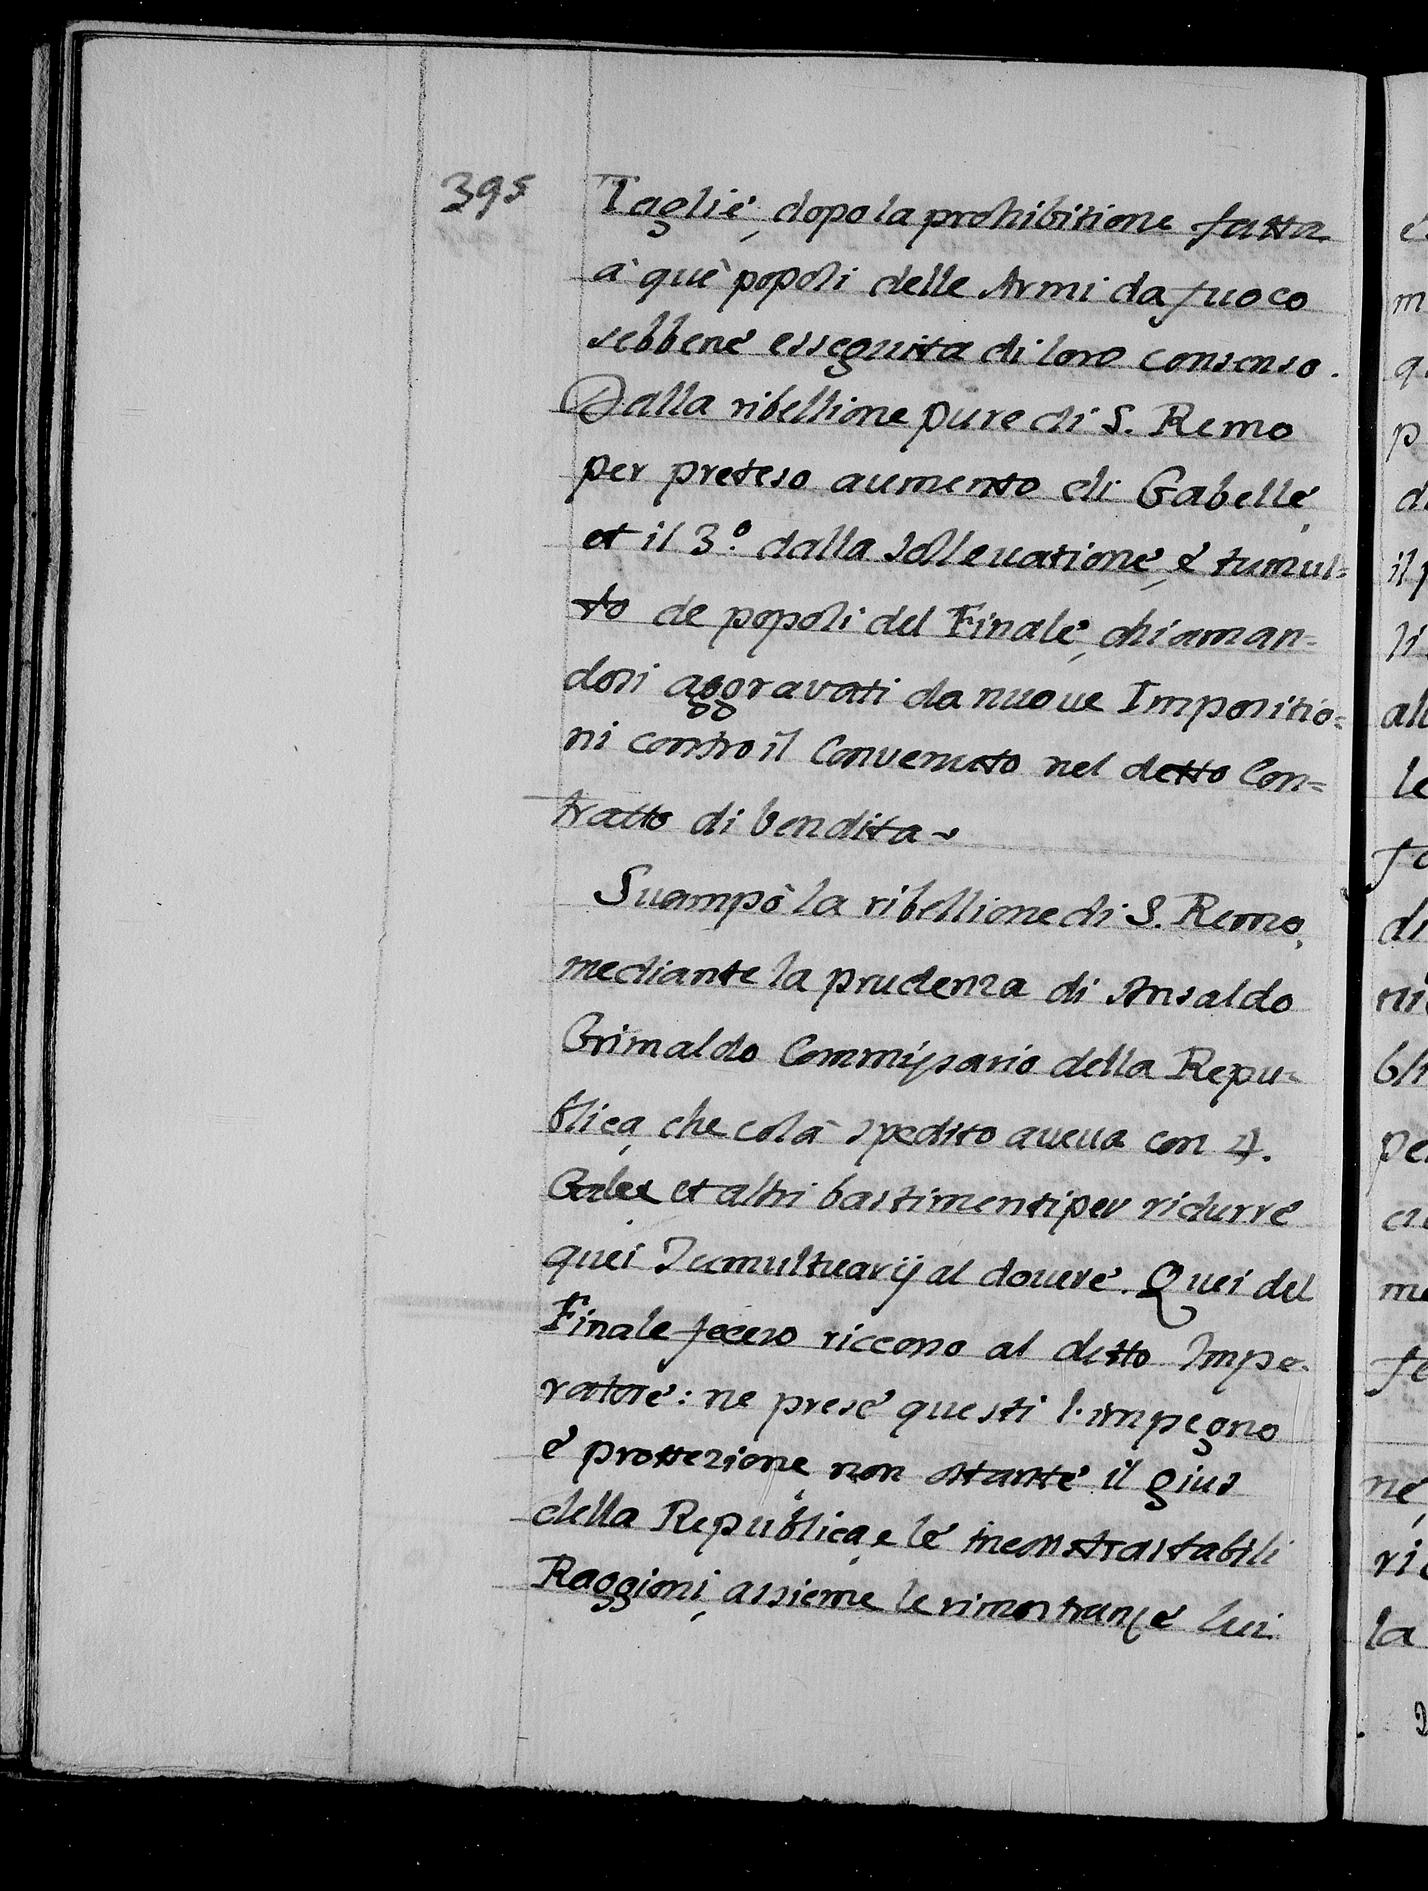 395
Taglie, dopo la prohibitione fatta
à què popoli delle Armi da fuoco
sebbene esseguita di loro consenso.
Dalla ribellione pure di S. Remo
per preteso aumento di Gabelle,
et il 3.º dalla solleuatione, è tumul=
to de popoli del Finale, chiaman=
dosi aggravati da nuoue Impositio=
ni contro il Convenuto nel detto Con=
tratto di Vendita
Suampò la ribellione di S. Remo,
mediante la prudenza di Ansaldo
Grimaldo Commissario della Repu=
blica, che colà spedito aueua con 4.
Galee et altri bastimenti per ridurre
quei Tumultuarij al douere. Quei del
Finale fecero riccorso al detto Impe=
ratore: ne prese questi l'impegno
è prottezione, non ostante il gius
della Republica, e le incontrastabili
Raggioni, assieme le rimostranze lui